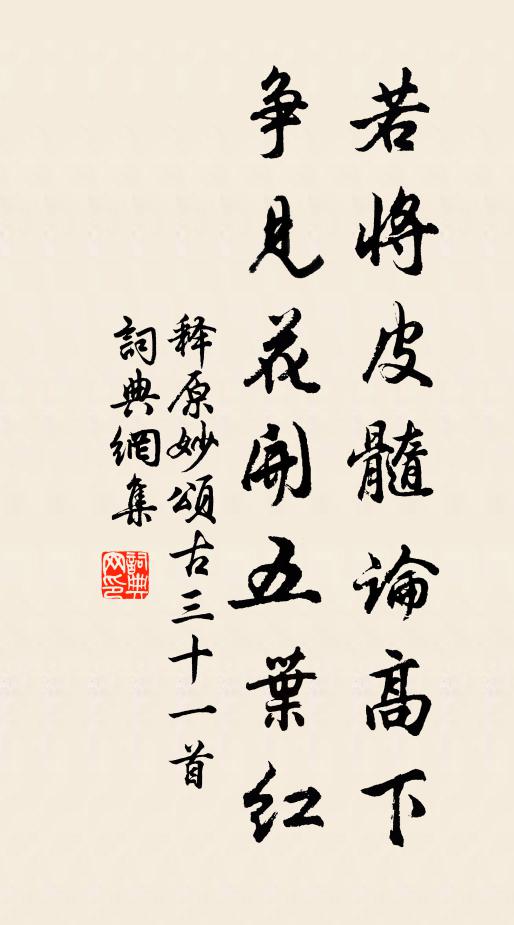 若將皮髓論高下
争見花開五葉紅
释原妙頌古三十一首
詞典網集
詞典網印